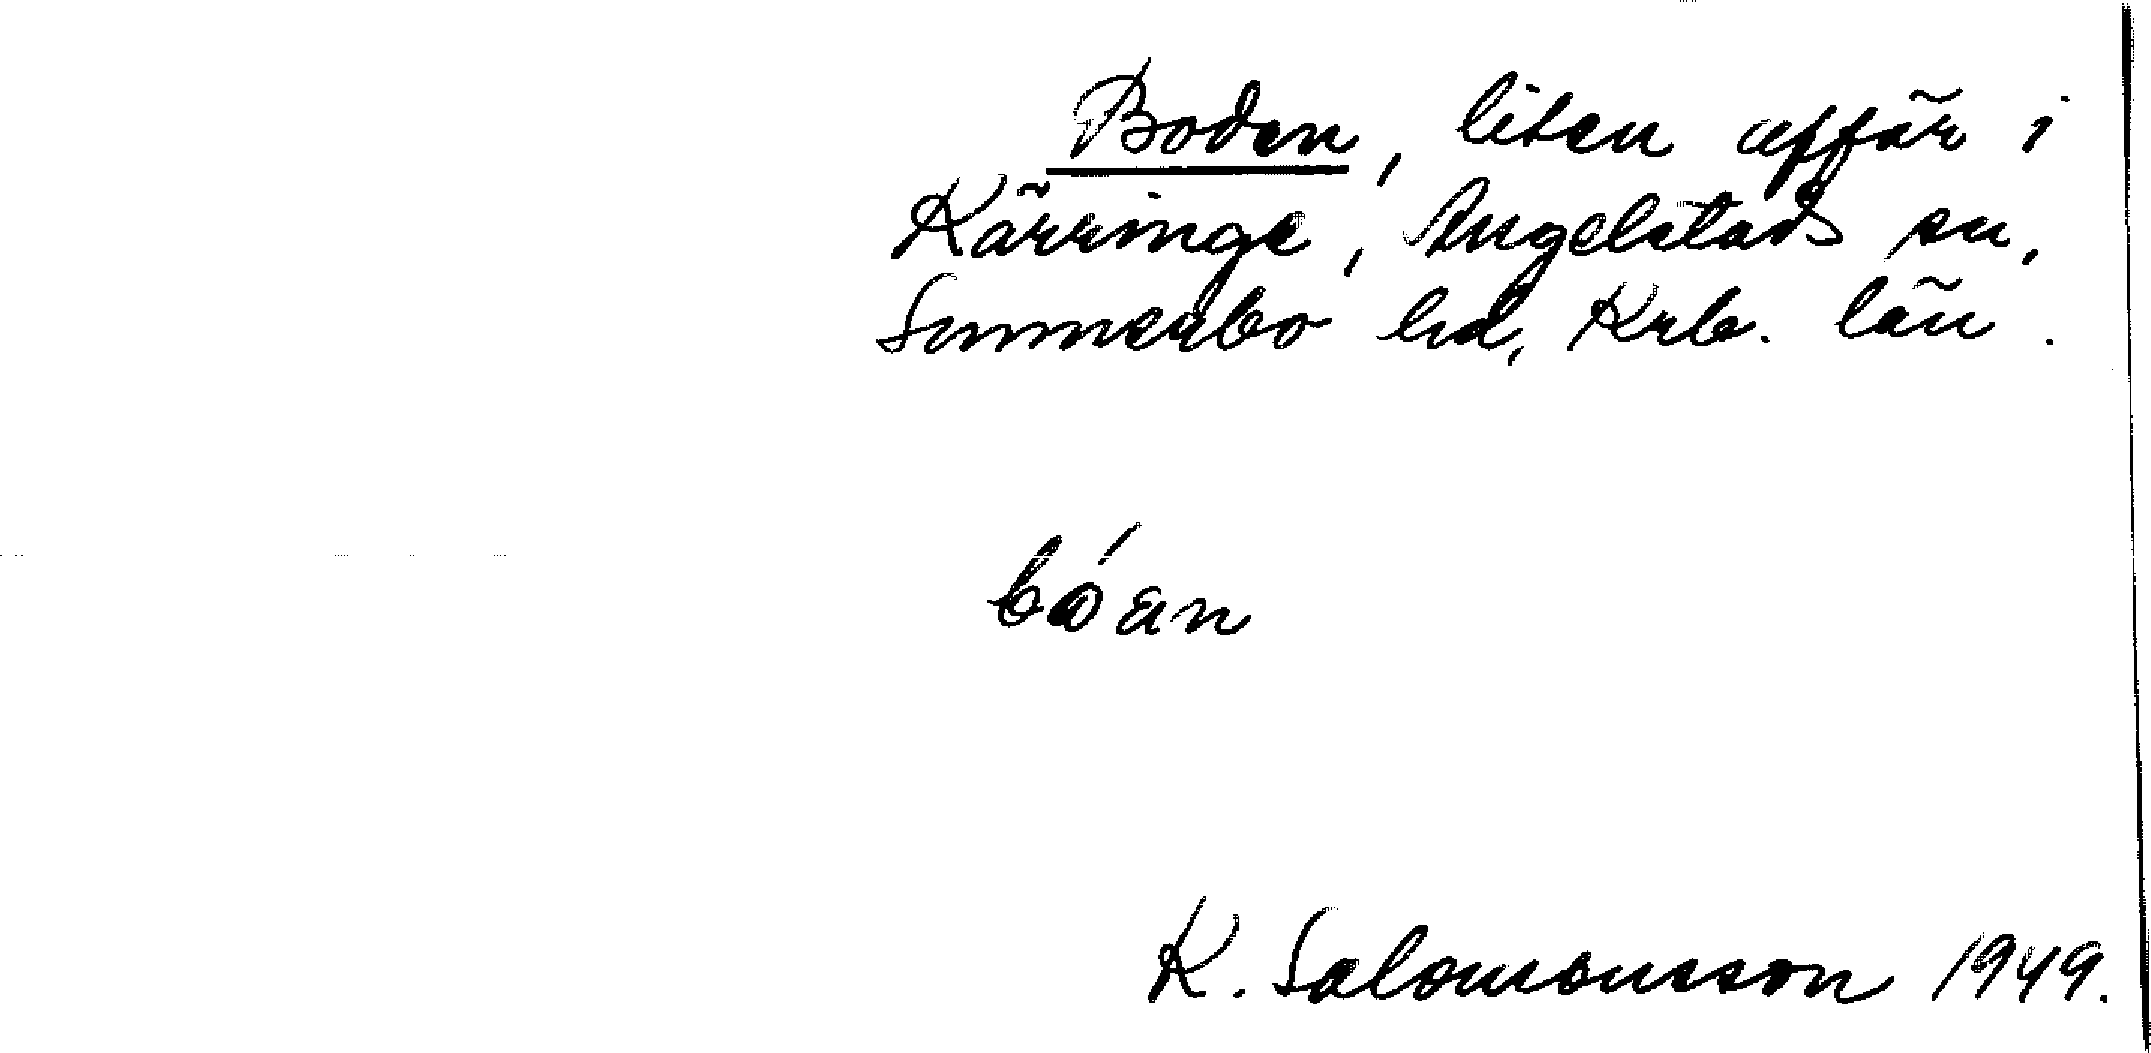 Boden, liten affär i
Kärringe, Angelstads sn,
Sunnerbo hd, Krb. län.
bóan
K. Salomonsson 1949.